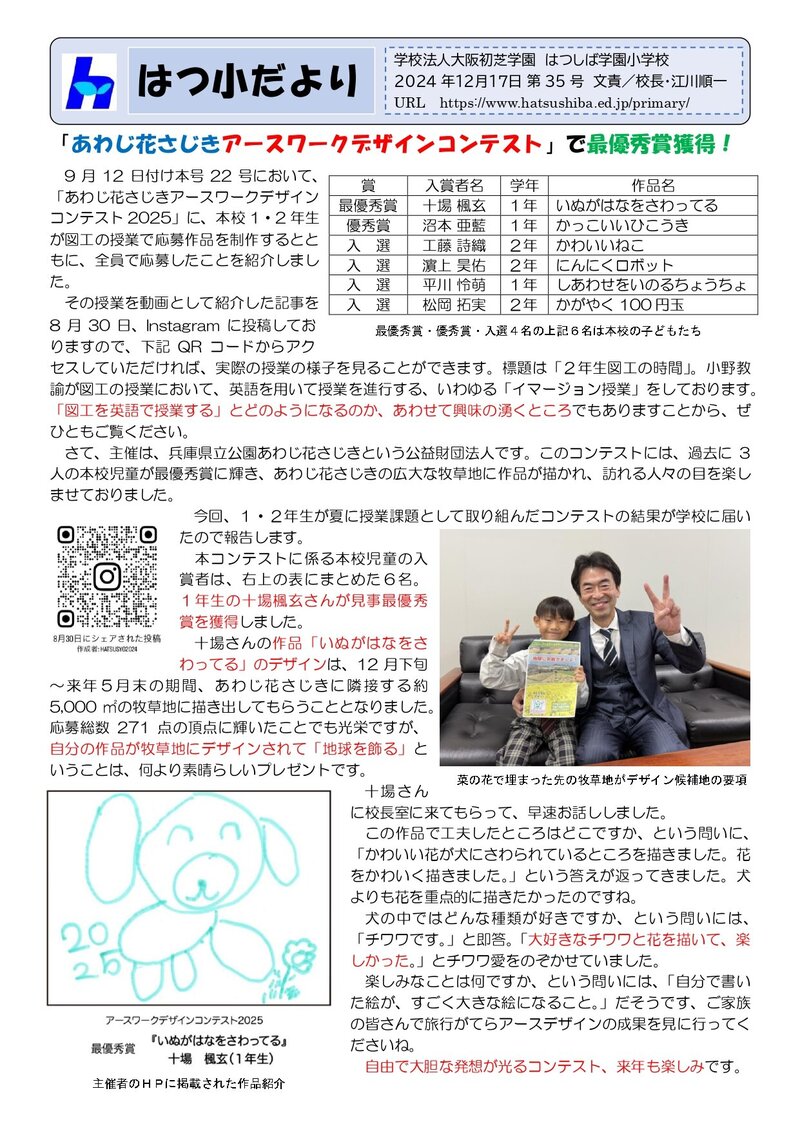 はつ小だより
学校法人大阪初芝学園 はつしば学園小学校
2024年12月17日 第35号 文責／校長・江川順一
URL https://www.hatsushiba.ed.jp/primary/
「あわじ花さじきアースワークデザインコンテスト」で最優秀賞獲得！
９月12日付け本号22号において、
「あわじ花さじきアースワークデザイン
コンテスト2025」に、本校１・２年生
が図工の授業で応募作品を制作するとと
もに、全員で応募したことを紹介しまし
た。
その授業を動画として紹介した記事を
８月30日、Instagramに投稿してお
りますので、下記QRコードからアク
賞 入賞者名 学年 作品名
最優秀賞 十場 楓玄 １年 いぬがはなをさわってる
優秀賞 沼本 亜藍 １年 かっこいいひこうき
入 選 工藤 詩織 ２年 かわいいねこ
入 選 濵上 昊佑 ２年 にんにくロボット
入 選 平川 怜萌 １年 しあわせをいのるちょうちょ
入 選 松岡 拓実 ２年 かがやく100円玉
最優秀賞・優秀賞・入選４名の上記６名は本校の子どもたち
セスしていただければ、実際の授業の様子を見ることができます。標題は「２年生図工の時間」。小野教
諭が図工の授業において、英語を用いて授業を進行する、いわゆる「イマージョン授業」をしております。
「図工を英語で授業する」とどのようになるのか、あわせて興味の湧くところでもありますことから、ぜ
ひともご覧ください。
さて、主催は、兵庫県立公園あわじ花さじきという公益財団法人です。このコンテストには、過去に３
人の本校児童が最優秀賞に輝き、あわじ花さじきの広大な牧草地に作品が描かれ、訪れる人々の目を楽し
ませておりました。
今回、１・２年生が夏に授業課題として取り組んだコンテストの結果が学校に届い
たので報告します。
本コンテストに係る本校児童の入
賞者は、右上の表にまとめた６名。
１年生の十場楓玄さんが見事最優秀
賞を獲得しました。
8月30日にシェアされた投稿
作成者:HATSUSYO2024
十場さんの作品「いぬがはなをさ
わってる」のデザインは、12月下旬
～来年５月末の期間、あわじ花さじきに隣接する約
5,000㎡の牧草地に描き出してもらうこととなりました。
応募総数271点の頂点に輝いたことでも光栄ですが、
自分の作品が牧草地にデザインされて「地球を飾る」と
いうことは、何より素晴らしいプレゼントです。
菜の花で埋まった先の牧草地がデザイン候補地の要項
十場さん
に校長室に来てもらって、早速お話ししました。
この作品で工夫したところはどこですか、という問いに、
「かわいい花が犬にさわられているところを描きました。花
をかわいく描きました。」という答えが返ってきました。犬
よりも花を重点的に描きたかったのですね。
犬の中ではどんな種類が好きですか、という問いには、
「チワワです。」と即答。「大好きなチワワと花を描いて、楽
しかった。」とチワワ愛をのぞかせていました。
楽しみなことは何ですか、という問いには、「自分で書い
た絵が、すごく大きな絵になること。」だそうです、ご家族
の皆さんで旅行がてらアースデザインの成果を見に行ってく
ださいね。
自由で大胆な発想が光るコンテスト、来年も楽しみです。
20
25
アースワークデザインコンテスト2025
最優秀賞 『いぬがはなをさわってる』
十場 楓玄（１年生）
主催者のＨＰに掲載された作品紹介